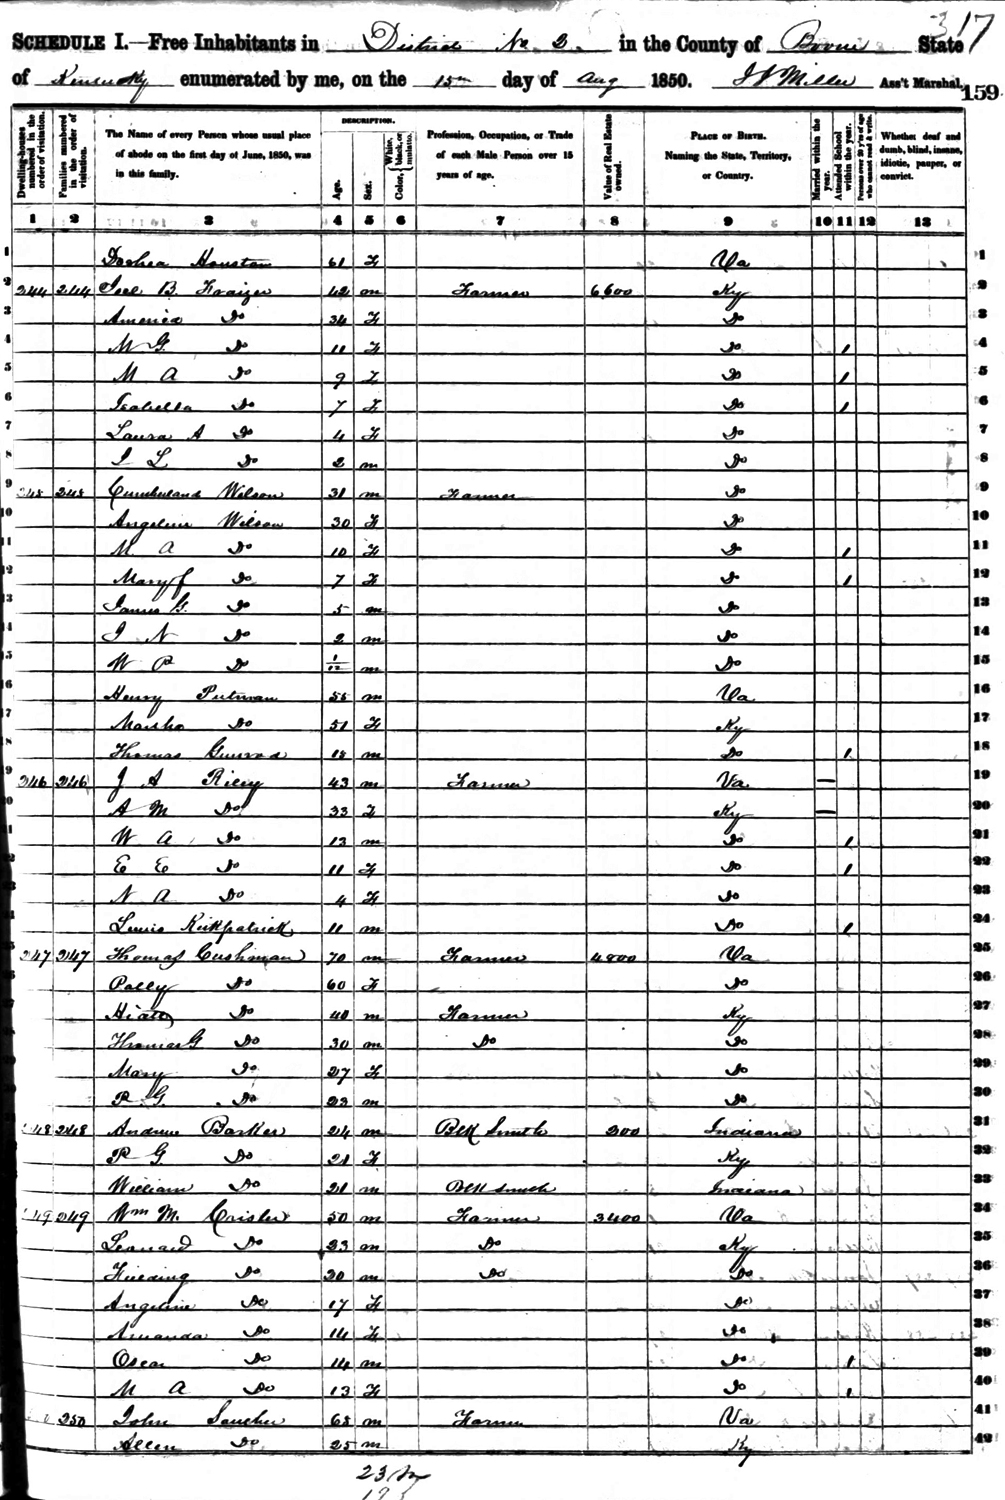 317
SCHEDULE I.—Free Inhabitants in District No 2. in the County of Boone State
of Kentucky enumerated by me, on the 15th day of Aug 1850. Miller Ass't Marshal.
159
Dwelling-houses numbered in the order of visitation.
Families numbered in the order of visitation.
The Name of every Person whose usual place of abode on the first day of June, 1850, was in this family.
DESCRIPTION.
Age.
Sex.
Color, White, black, or mulatto.
Profession, Occupation, or Trade of each Male Person over 15 years of age.
Value of Real Estate owned.
PLACE OF BIRTH. Naming the State, Territory, or Country.
Married within the year.
Attended School within the year.
Persons over 20 y'rs of age who cannot read & write.
Whether deaf and dumb, blind, insane, idiotic, pauper, or convict.
1 2 3 4 5 6 7 8 9 10 11 12 13
1 Houston 61 F Va 1
2 244 244 Joel B. Fraizer 42 m Farmer 6600 Ky 2
3 America Do 34 F Do 3
4 M G. Do 11 F Do 1 4
5 M A Do 9 F Do 1 5
6 Isabella Do 7 F Do 1 6
7 Laura A Do 4 F Do 7
8 I L Do 2 m Do 8
9 245 245 Cumberland Wilson 31 m Farmer Do 9
10 Angeline Wilson 30 F Do 10
11 M A Do 10 F Do 1 11
12 Mary f Do 7 F Do 1 12
13 James G. Do 5 m Do 13
14 I N Do 2 m Do 14
15 W P Do 1/12 m Do 15
16 Henry Putman 55 m Va 16
17 Do 51 F Ky 17
18 Thomas 18 m Do 1 18
19 246 246 J A Riley 43 m Farmer Va — 19
20 A M Do 33 F Ky — 20
21 W A Do 13 m Do 1 21
22 E E Do 11 F Do 1 22
23 N A Do 4 F Do 23
24 Lewis Kirkpatrick 11 m Do 1 24
25 247 247 Thomas Cushman 70 m Farmer 4800 Va 25
26 Polly Do 60 F Do 26
27 Hiatt Do 40 m Farmer Ky 27
28 Thomas G Do 30 m Do Do 28
29 Mary Do 27 F Do 29
30 P G. Do 23 m Do 30
31 248 248 Andrew Barker 24 m Blk Smith 200 Indiana 31
32 P G. Do 21 F Ky 32
33 William Do 21 m Blk Smith Indiana 33
34 249 249 Wm M. Crisler 50 m Farmer 3400 Va 34
35 Leonard Do 23 m Do Ky 35
36 Fielding Do 20 m Do Do 36
37 Angeline Do 17 F Do 37
38 Amanda Do 14 F Do 38
39 Oscar Do 14 m Do 1 39
40 M A Do 13 F Do 1 40
41 250 John 68 m Farmer Va 41
42 Allen Do 25 m Ky 42
23